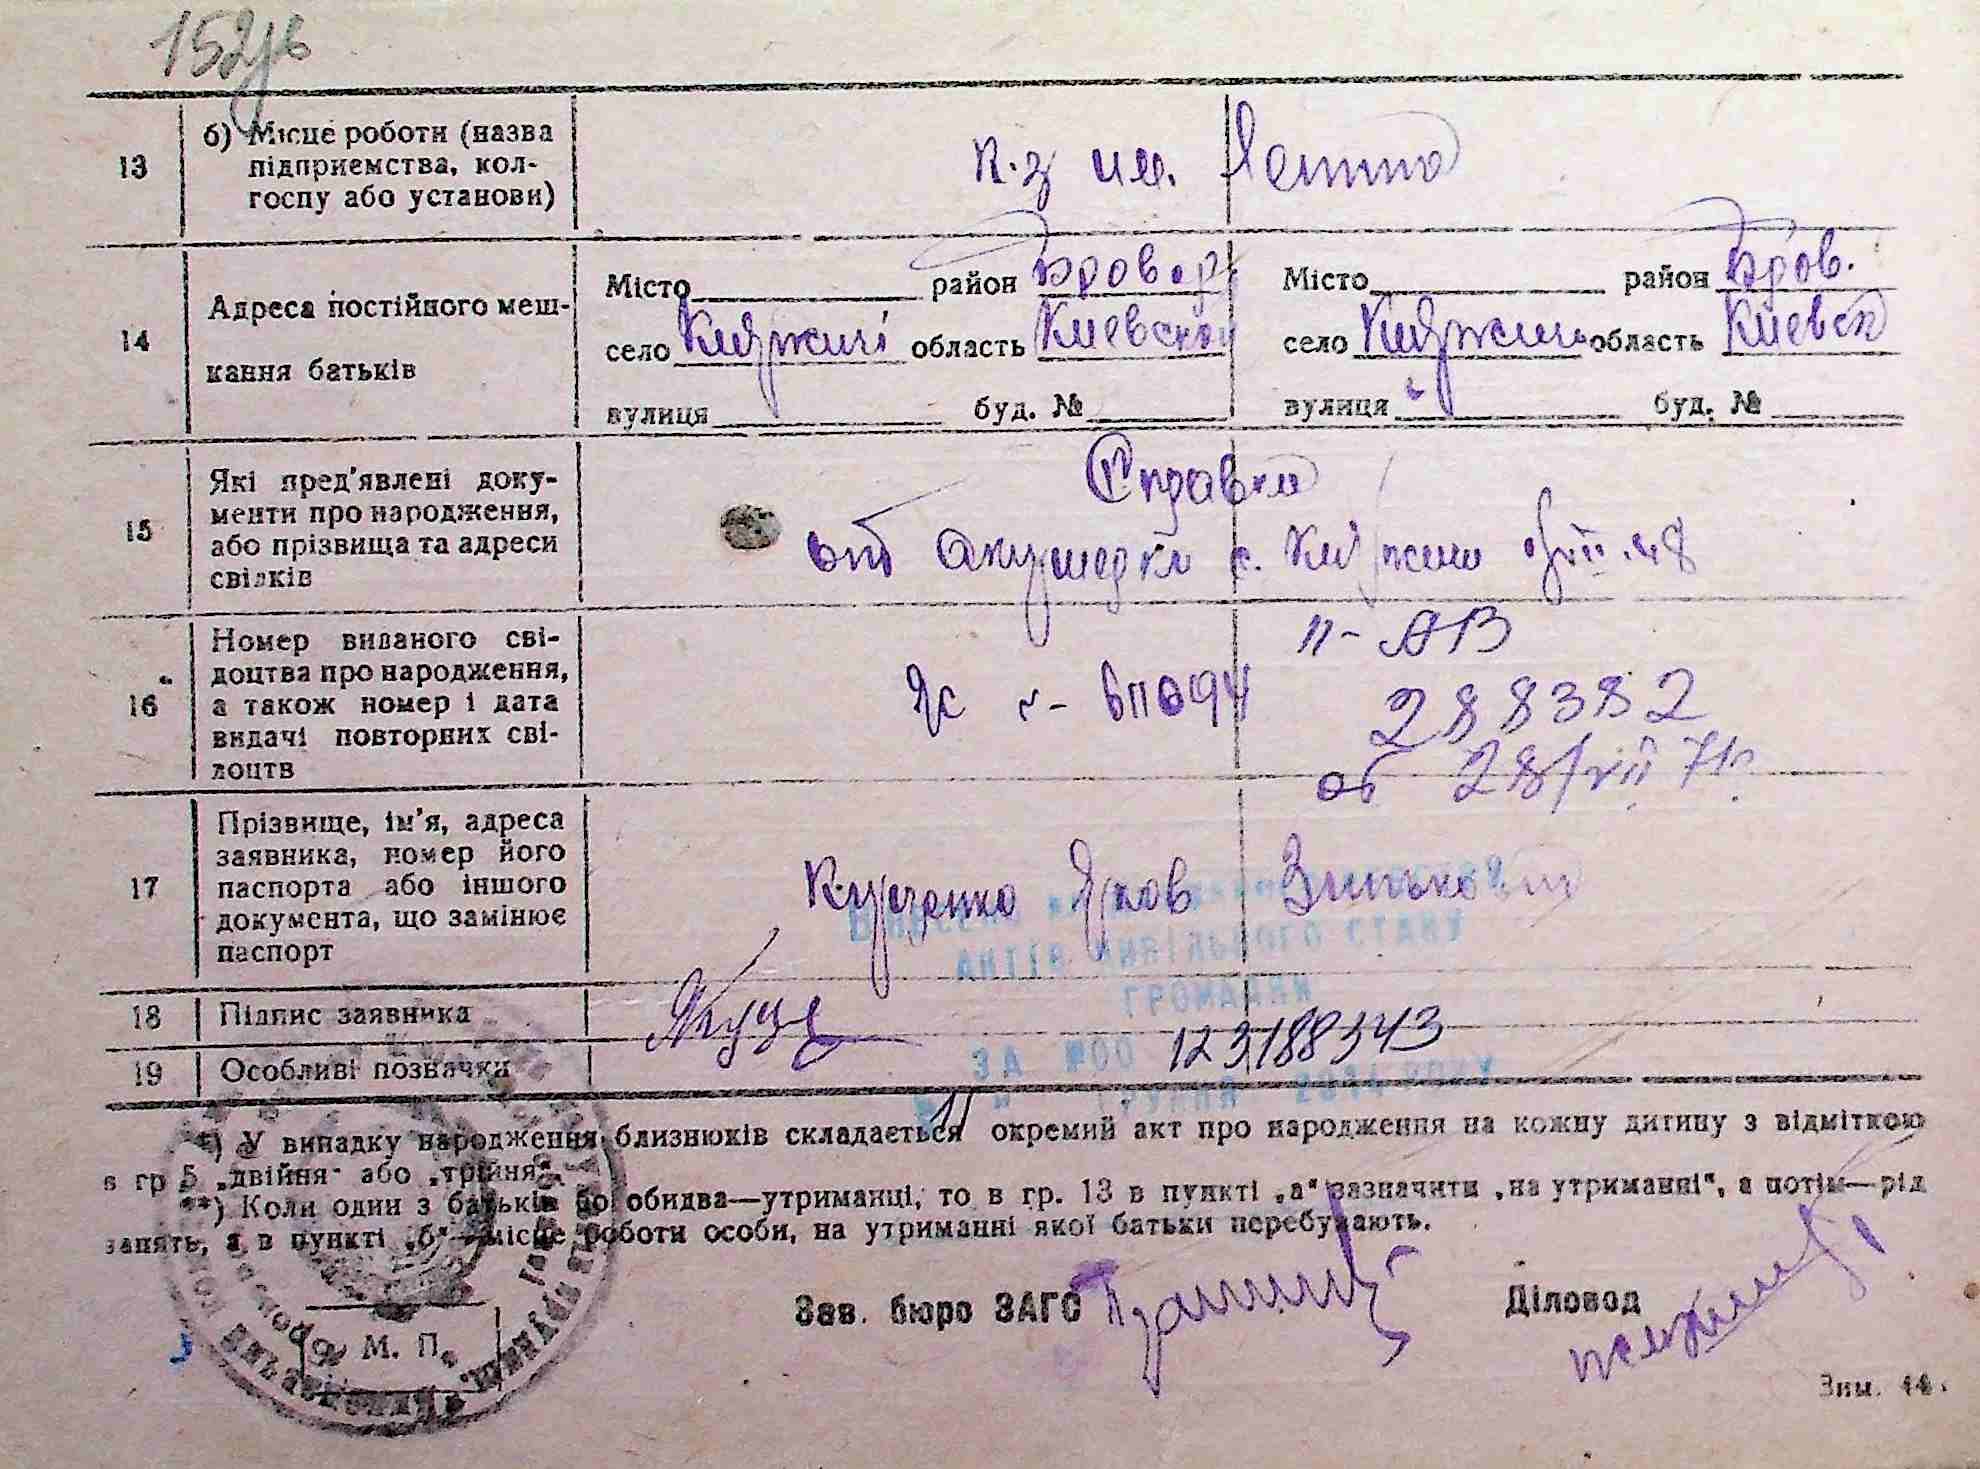 152
13
б) Місце роботи (назва
підприємства, кол-
госпу або установи)
к-з им. Ленина
14
Адреса постійного меш-
кання батьків
Місто район Бровар
село Княжичі область Киевской
вулиця буд. №
Місто район Бров.
село Княжичи область Киевск
вулиця буд. №
15
Які пред'явлені доку-
менти про народження,
або прізвища та адреси
свідків
Справка
от акушерки с. Княжичи
16
Номер виданого сві-
доцтва про народження,
а також номер і дата
видачі повторних сві-
доцтв
II-АВ
288382
от 28/VII 71г.
17
Прізвище, ім'я, адреса
заявника, номер його
паспорта або іншого
документа, що замінює
паспорт
Куценко Яков Зинькович
АКТІВ ЦИВІЛЬНОГО СТАНУ
ГРОМАДЯН
18
Підпис заявника
ЗА №00 123188343
19
Особливі позначки
ГРУДНЯ 2014 РОКУ
*) У випадку народження близнюків складається окремий акт про народження на кожну дитину з відміткою
в гр 5 „двійня" або „трійня".
**) Коли один з батьків бо обидва—утриманці, то в гр. 13 в пункті „а" зазначити „на утриманні", а потім—рід
занять, а в пункті „б"—місце роботи особи, на утриманні якої батьки перебувають.
Зав. бюро ЗАГС
Діловод
М. П.
Зим. 44